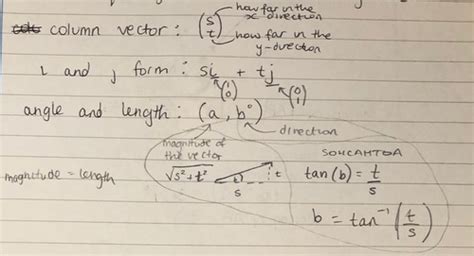 how far in the
x direction
column vector : (s t)
how far in the
y-direction
i and j form : si + tj
(1 0) (0 1)
angle and length : (a, b°)
direction
magnitude of
the vector
SOHCAHTOA
magnitude = length
√s² + t²
b
t
s
tan(b) = t/s
b = tan⁻¹ (t/s)